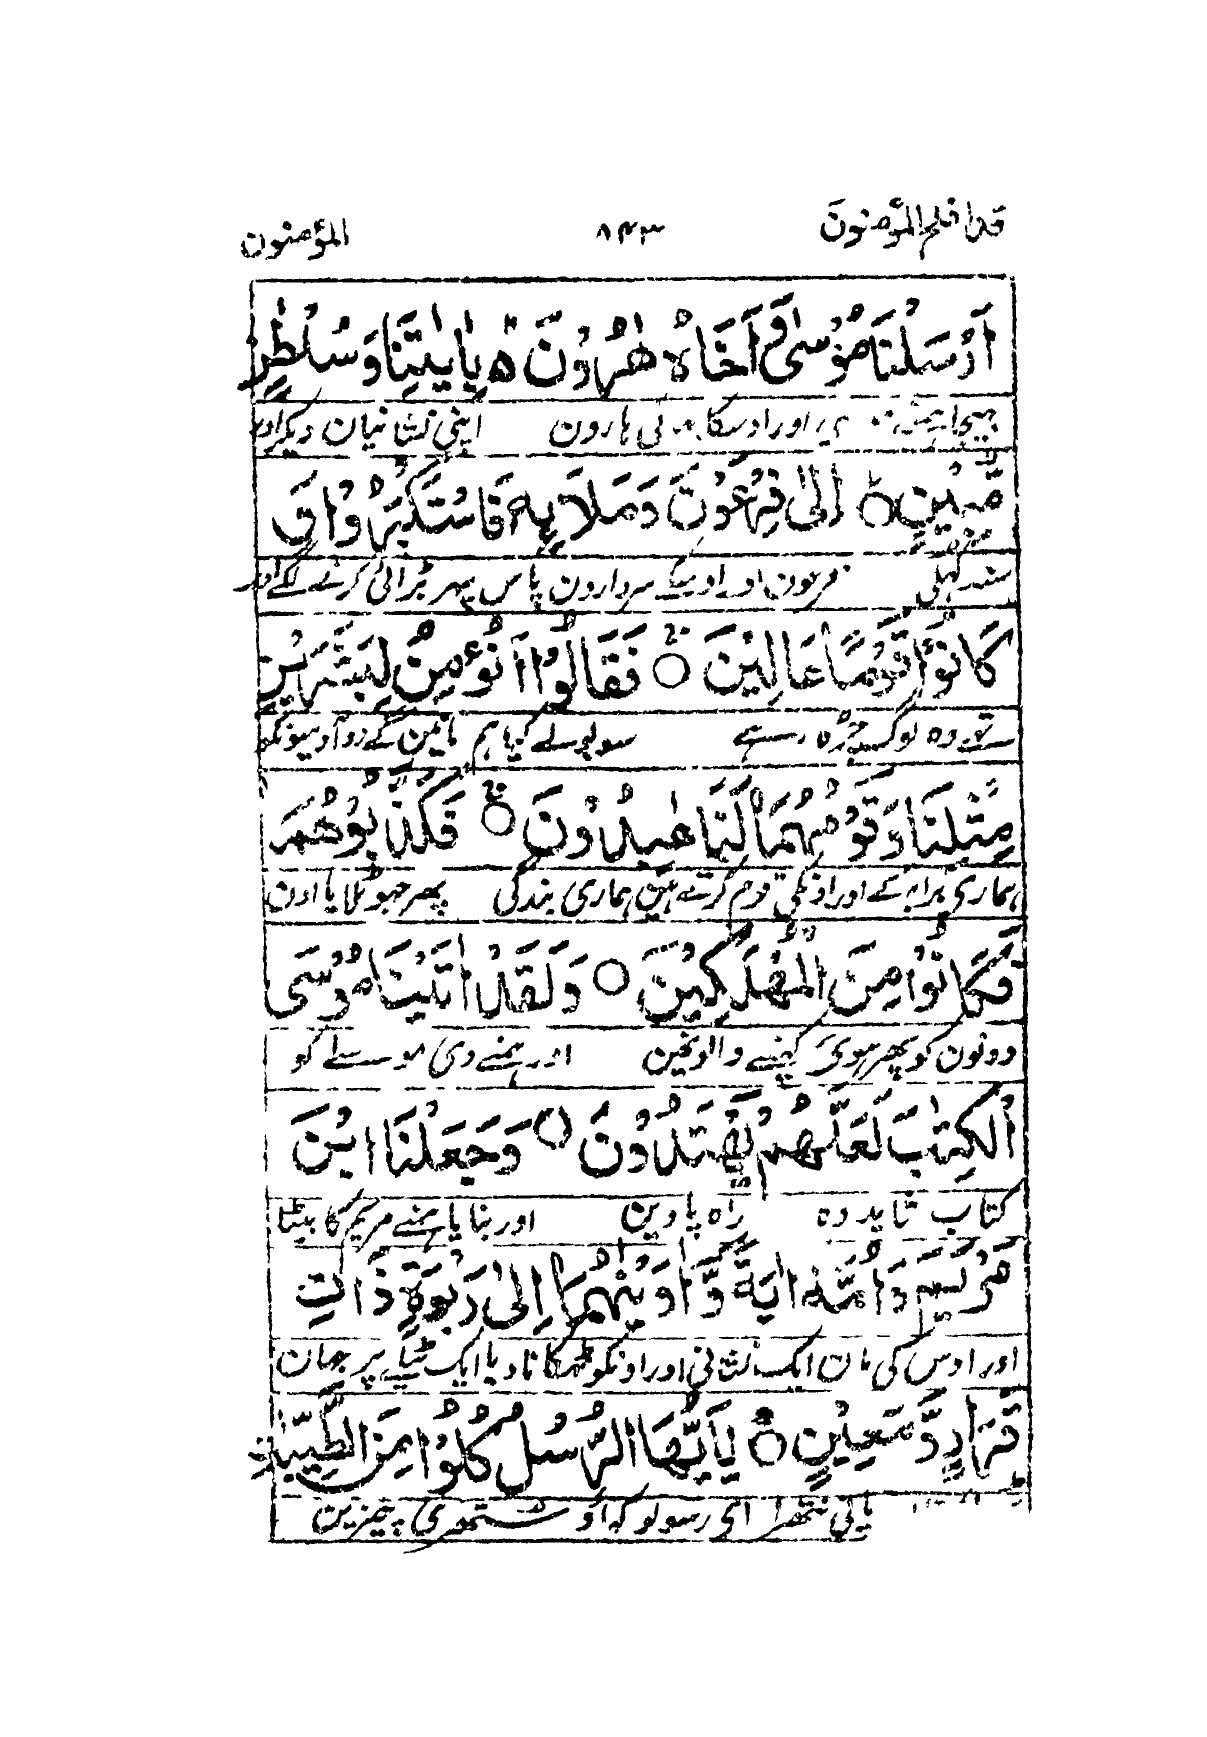 قد افلح المؤمنون ۸۴۳ المؤمنون
اَرْسَلْنَا مُوْسٰی وَ اَخَاهُ هٰرُوْنَ ۵ بِاٰیٰتِنَا وَ سُلْطٰنٍ
بھیجا ہمنے اور اوسکا بھائی ہارون اپنی نشانیان دیکر اور
مُّبِیْنٍ ۝ اِلٰی فِرْعَوْنَ وَ مَلَا۠ئِهٖ فَاسْتَكْبَرُوْا وَ
سند کھلی فرعون اور اوسکے سردارون پاس پھر بڑائی کرنے لگے اور
كَانُوْا قَوْمًا عَالِیْنَ ۝ فَقَالُوْۤا اَنُؤْمِنُ لِبَشَرَیْنِ
تھے وہ لوگ چڑھ رہے سو بولے کیا ہم مانین گے دو آدمیونکو
مِثْلِنَا وَ قَوْمُهُمَا لَنَا عٰبِدُوْنَ ۝ فَكَذَّبُوْهُمَا
ہماری برابر کے اور اونکی قوم کرتے ہین ہماری بندگی پھر جھوٹلایا اون
فَكَانُوْا مِنَ الْمُهْلَكِیْنَ ۝ وَ لَقَدْ اٰتَیْنَا مُوْسَی
دونون کو پھر ہوئے کھپنے والونمین اور ہمنے دی موسے کو
الْكِتٰبَ لَعَلَّهُمْ یَهْتَدُوْنَ ۝ وَ جَعَلْنَا ابْنَ
کتاب شاید وہ راہ پاوین اور بنایا ہمنے مریم کا بیٹا
مَرْیَمَ وَ اُمَّهٗۤ اٰیَةً وَّ اٰوَیْنٰهُمَاۤ اِلٰی رَبْوَةٍ ذَاتِ
اور اوس کی مان ایک نشانی اور اونکو ٹھکانا دیا ایک ٹیلے پر جہان
قَرَارٍ وَّ مَعِیْنٍ ۝ یٰۤاَیُّهَا الرُّسُلُ كُلُوْا مِنَ الطَّیِّبٰتِ
پانی نتھرا اے رسولو کھاؤ ستھری چیزین